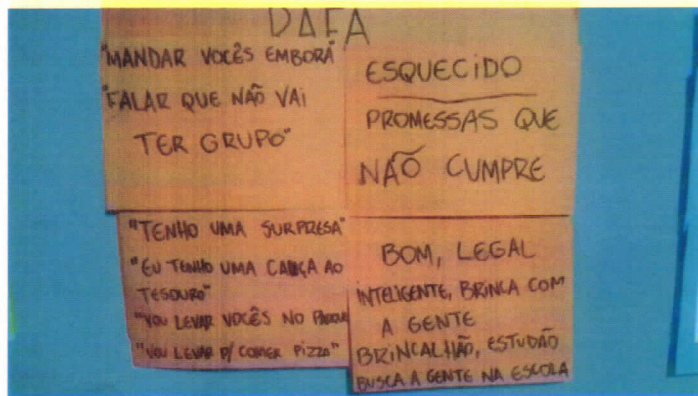 DAFA
"MANDAR VOCÊS EMBORA"
"FALAR QUE NÃO VAI
TER GRUPO"
ESQUECIDO
PROMESSAS QUE
NÃO CUMPRE
"TENHO UMA SURPRESA"
"EU TENHO UMA CAÇA AO
TESOURO"
"VOU LEVAR VOCÊS NO
"VOU LEVAR P/ COMER PIZZA"
BOM, LEGAL
INTELIGENTE, BRINCA COM
A GENTE
BRINCALHÃO, ESTUDÃO
BUSCA A GENTE NA ESCOLA